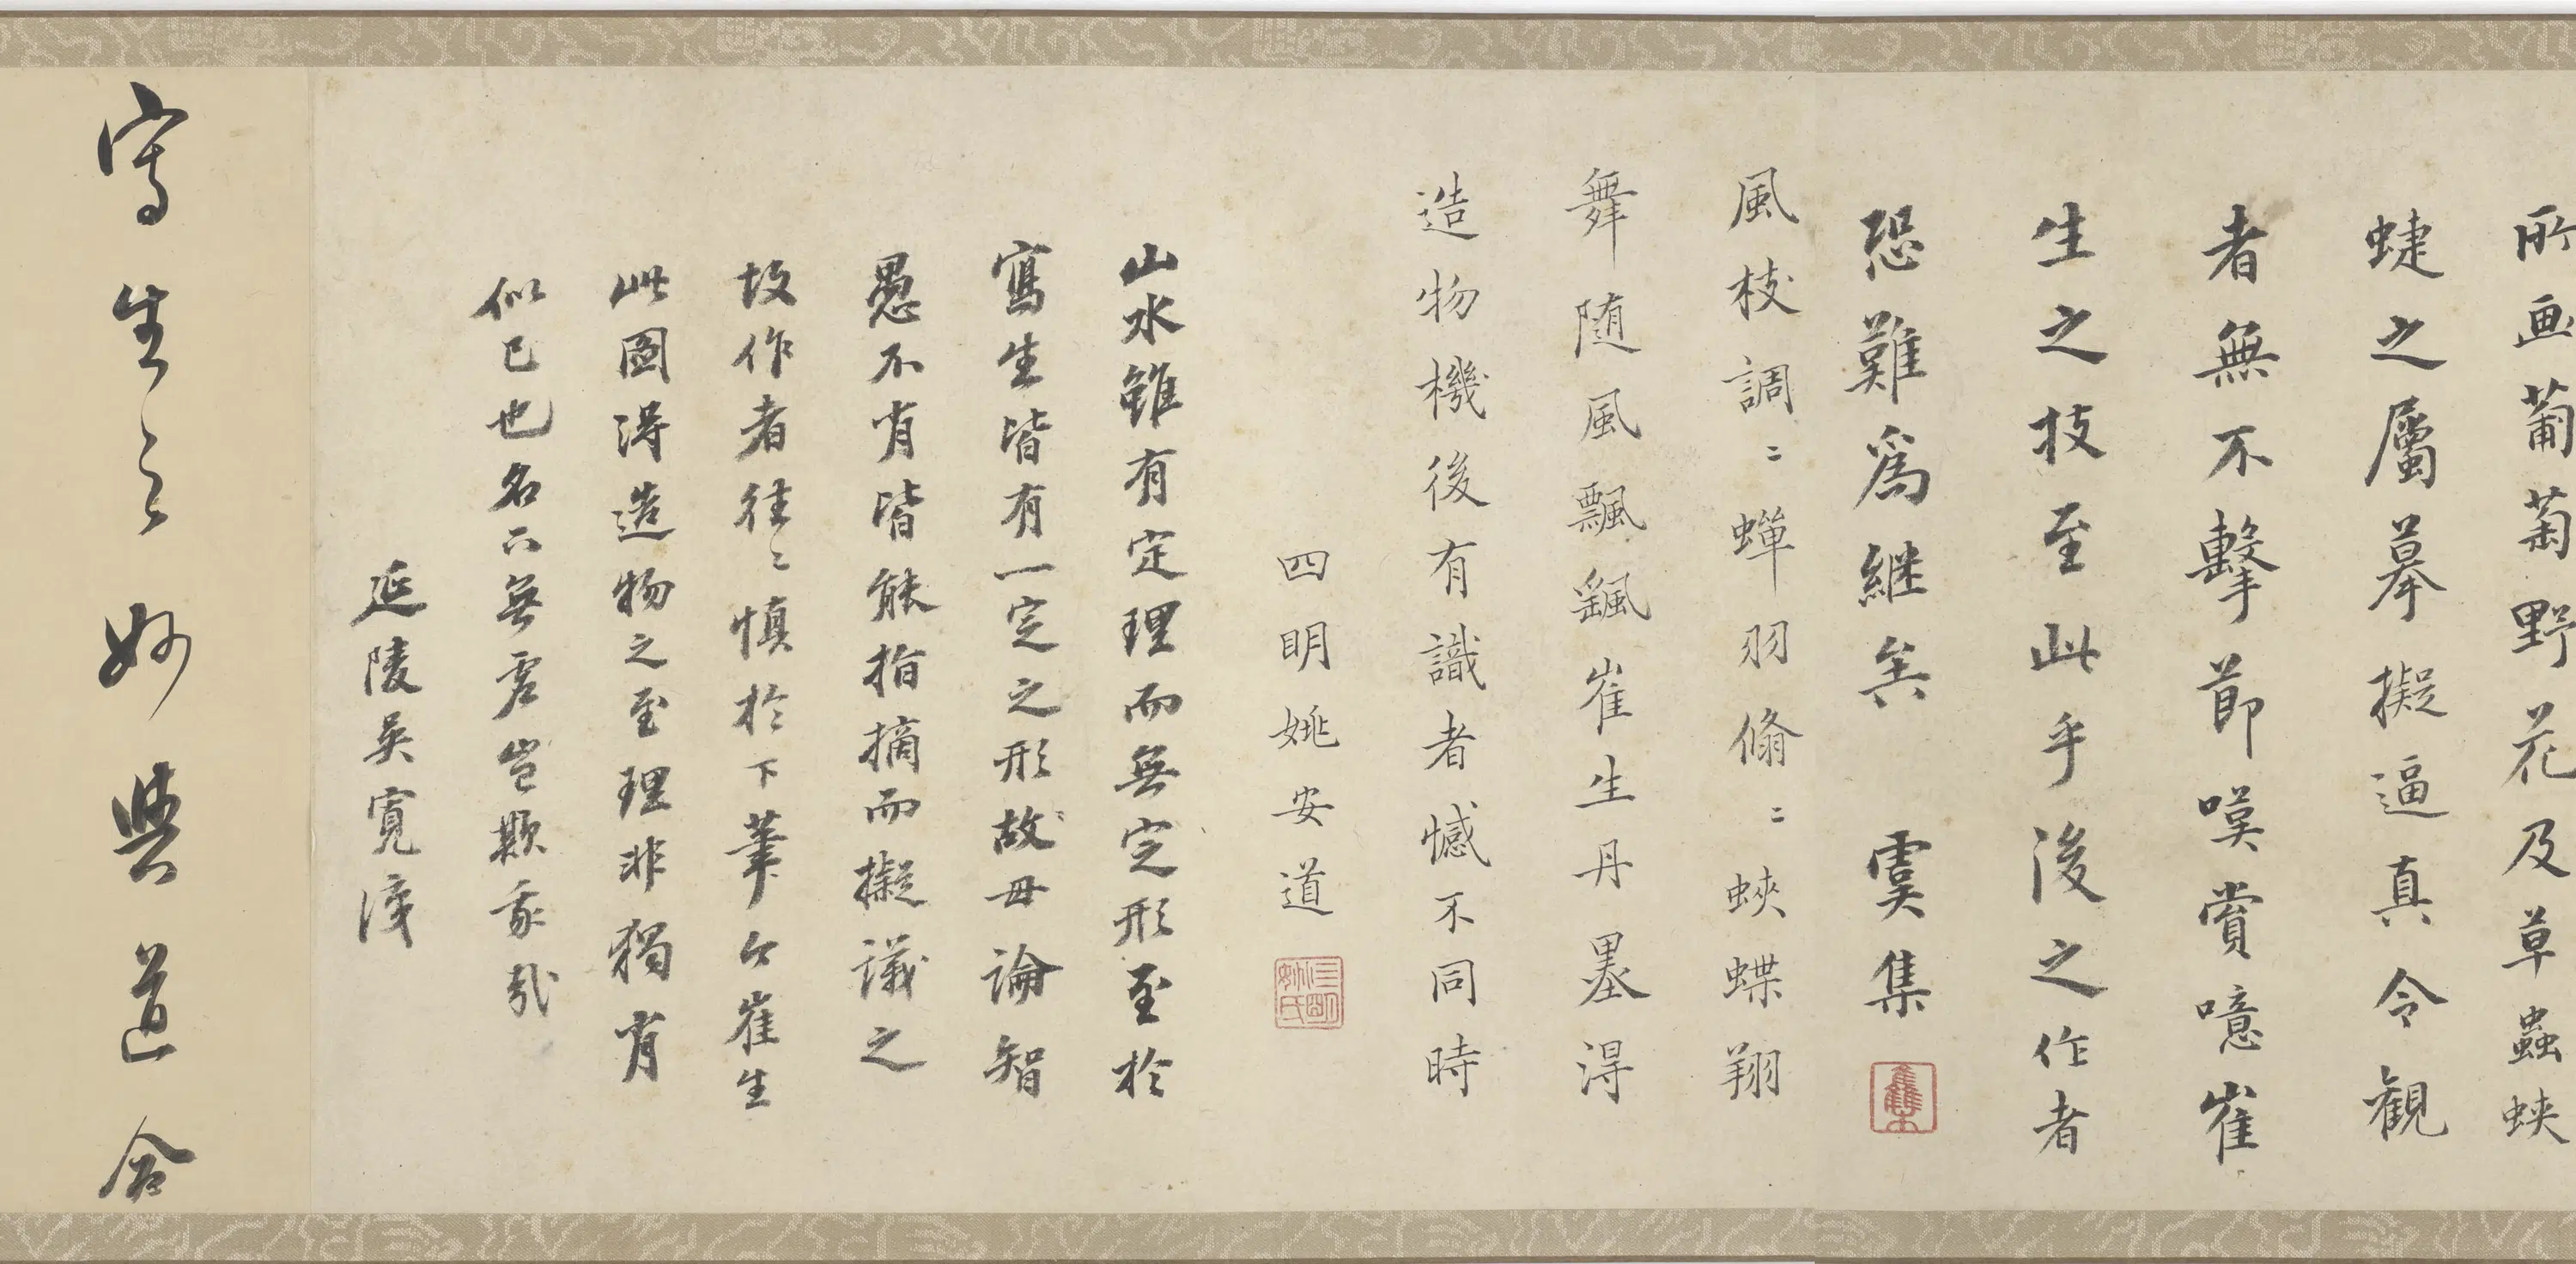 所画葡萄野花及草蟲蛺
蜨之屬摹擬逼真令觀
者無不擊節嘆賞噫崔
生之技至此乎後之作者
恐難爲継矣　虞集
風枝調〻蟬羽翛〻蛺蝶翔
舞随風飄颻崔生丹墨淂
造物機後有識者憾不同時
四明姚安道
山水雖有定理而無定形至於
寫生皆有一定之形故毋論智
愚不肖皆能指摘而擬議之
故作者往〻慎於下筆今崔生
此圖淂造物之至理非獨肖
似已也名下無虚豈欺我哉
延陵吴寛識
寫生之妙與道合